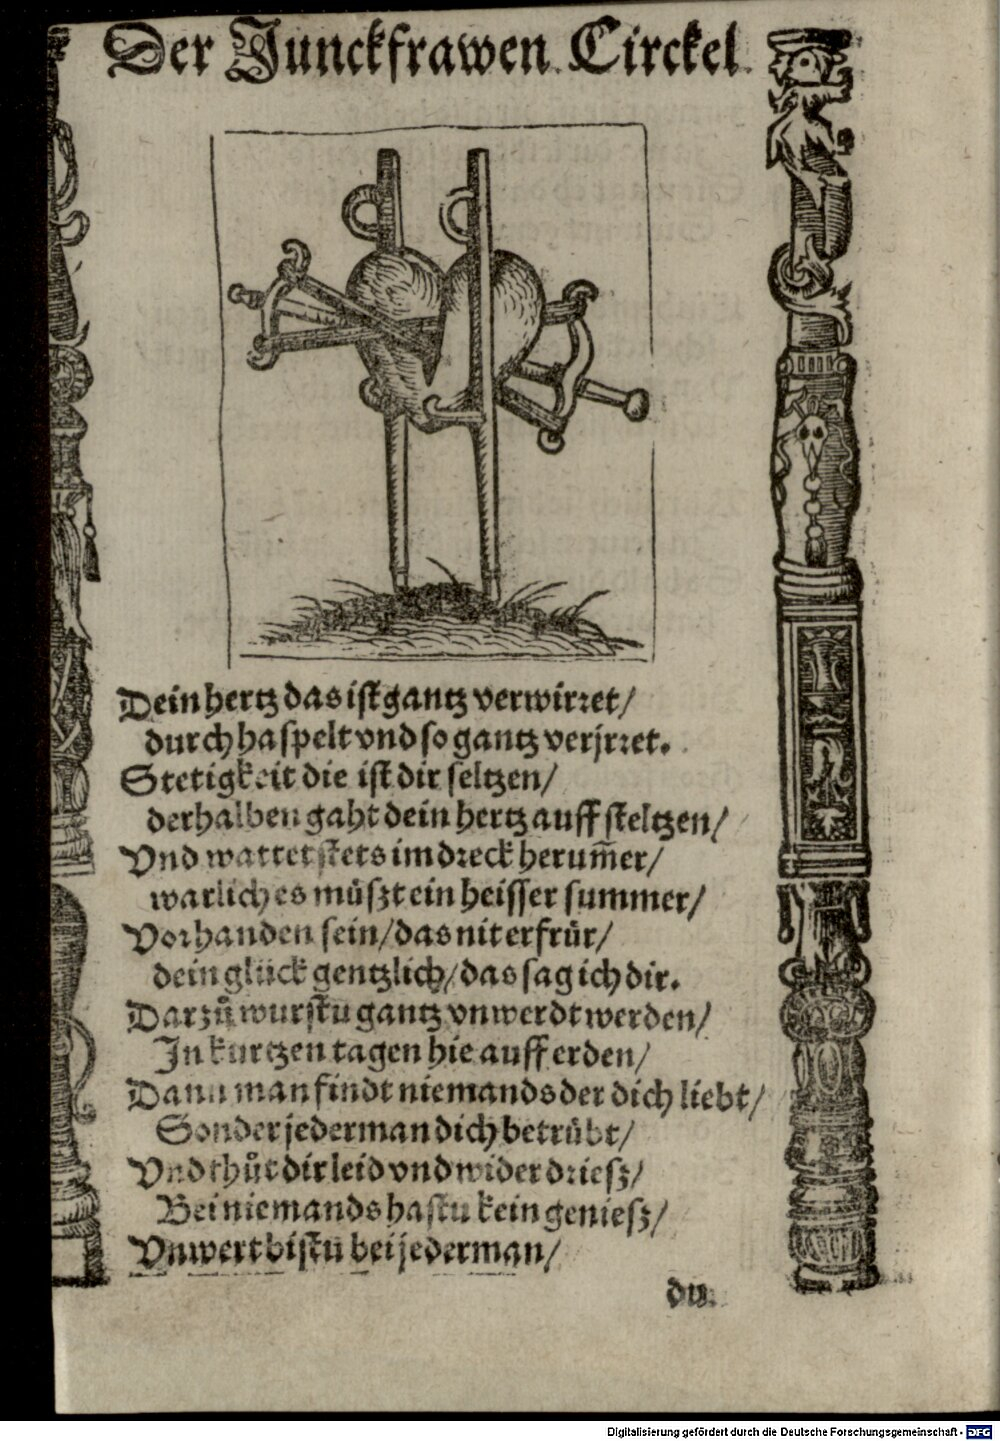 Der Junckfrawen Circkel
Dein hertz das ist gantz verwirret/
durch haspelt vnd so gantz verjrret.
Stetigkeit die ist dir seltzen/
derhalben gaht dein hertz auff steltzen/
Vnd wattet stets im dreck herum̃er/
warlich es müszt ein heisser summer/
Vorhanden sein/das nit erfrür/
dein glück gentzlich/das sag ich dir.
Darzů wurstu gantz vnwerdt werden/
In kurtzen tagen hie auff erden/
Dann man findt niemands der dich liebt/
Sonder jederman dich betrübt/
Vnd thůt dir leid vnd widerdriesz/
Bei niemands hastu kein geniesz/
Vnwert bistu bei jederman/
du.
Digitalisierung gefördert durch die Deutsche Forschungsgemeinschaft - DFG